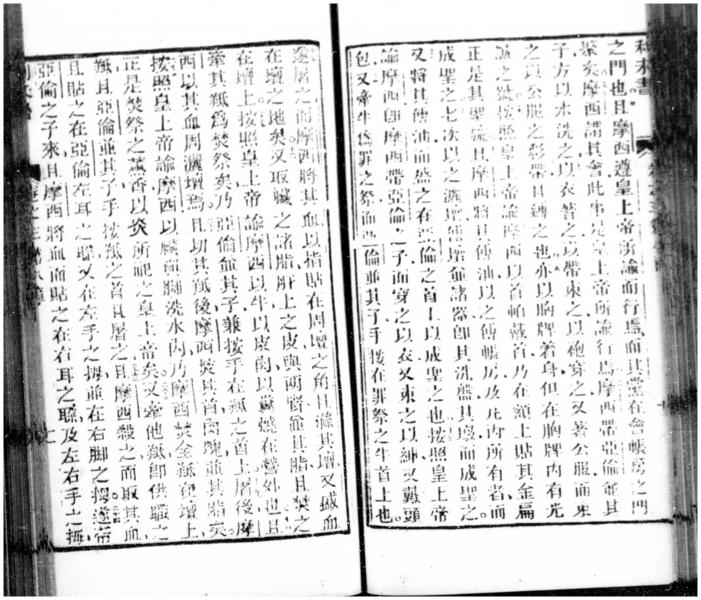 利未書
之門也且摩西遵皇上帝所諭而行焉而其黨在會帳房之門
聚矣摩西謂其會此事是皇上帝所諭行焉摩西帶亞倫並其
子方以水洗之以衣著之以帶束之以袍穿之又著公服而束
之以公服之彩帶且縛之也亦以胸牌著身但在胸牌內有光
誠之號按照皇上帝諭摩西以首帕戴首乃在額上貼其金扁
正是其聖冠且摩西將其傅油以之傅帳房及凡內所有者而
成聖之七次以之灑壇傅壇並諸器卽其洗盤其墩而成聖之
又將其傅油而然之在亞倫之首上以成聖之也按照皇上帝
諭摩西卽摩西帶亞倫之子而穿之以衣又束之以紳又戴頭
包又牽牛爲罪之祭而亞倫並其子手按在罪祭之牛首上也
遂屠之而摩西將其血以指貼在周壇之角且滌其壇又盛血
在壇之地矣又取臟之諸脂肝上之皮與兩腎並其脂且焚之
在壇上按照皇上帝諭摩西以牛以皮肉以糞燒在營外也且
牽其羝爲焚祭矣乃亞倫並其子兼按手在羝之首上屠後摩
西以其血周灑壇焉且切其羝後摩西焚其首肉塊並其脂矣
按照皇上帝諭摩西以臟與脚洗水內乃摩西焚全羝在壇上
正是焚祭之薰香以炎所祀之皇上帝矣又牽他羝卽供職之
羝且亞倫並其子手按羝之首且屠之且摩西殺之而取其血
且貼之在亞倫左耳之聽又在左手之拇並在右脚之拇遂帶
亞倫之子來且摩西將血而貼之在右耳之聽及左右手之拇